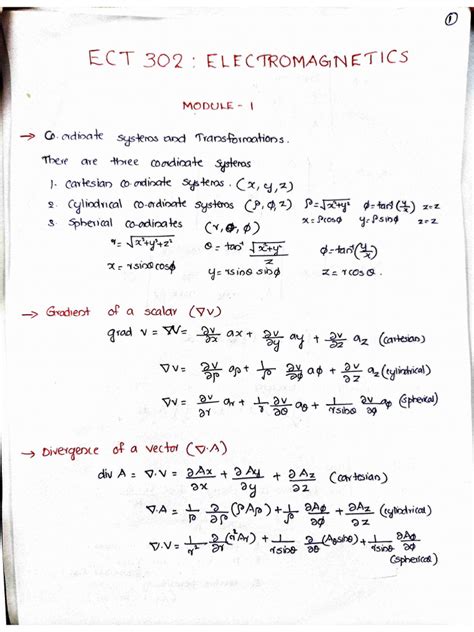 ①
ECT 302 : ELECTROMAGNETICS
MODULE - 1
→ Co-ordinate systems and Transformations.
There are three coordinate systems
1. Cartesian co-ordinate systems. (x, y, z)
2. Cylindrical co-ordinate systems (ρ, φ, z) ρ = √x²+y² φ = tan⁻¹(y/x) z = z
x = ρcosφ y = ρsinφ z = z
3. Spherical co-ordinates (r, θ, φ)
r = √x²+y²+z² θ = tan⁻¹ √x²+y²/z φ = tan⁻¹(y/x)
x = rsinθcosφ y = rsinθ sinφ z = rcosθ.
→ Gradient of a scalar (∇v)
grad v = ∇v = ∂v/∂x ax + ∂v/∂y ay + ∂v/∂z az (cartesian)
∇v = ∂v/∂ρ aρ + 1/ρ ∂v/∂φ aφ + ∂v/∂z az (cylindrical)
∇v = ∂v/∂r ar + 1/r ∂v/∂θ aθ + 1/rsinθ ∂v/∂φ aφ (spherical)
→ Divergence of a vector (∇.A)
div A = ∇.V = ∂Ax/∂x + ∂Ay/∂y + ∂Az/∂z (cartesian)
∇.A = 1/ρ ∂/∂ρ (ρAρ) + 1/ρ ∂Aφ/∂φ + ∂Az/∂z (cylindrical)
∇.V = 1/r² ∂/∂r (r²Ar) + 1/rsinθ ∂/∂θ (Aθsinθ) + 1/rsinθ ∂Aφ/∂φ
(spherical)